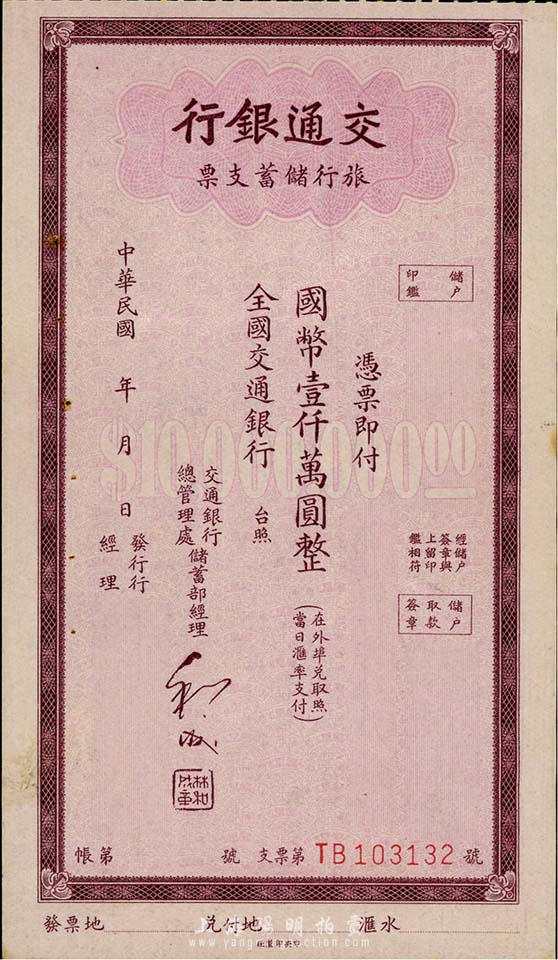 交通銀行
旅行儲蓄支票
儲戶
印鑑
經儲戶
簽章與
上留印
鑑相符
儲戶
取款
簽章
憑票即付
國幣壹仟萬圓整
(在外埠兌取照
當日滙率支付)
全國交通銀行
台照
交通銀行
總管理處
儲蓄部經理
中華民國 年 月 日
發行行
經理
$10,000,000.00
帳第 號
支票第TB103132號
發票地
兌付地
滙水